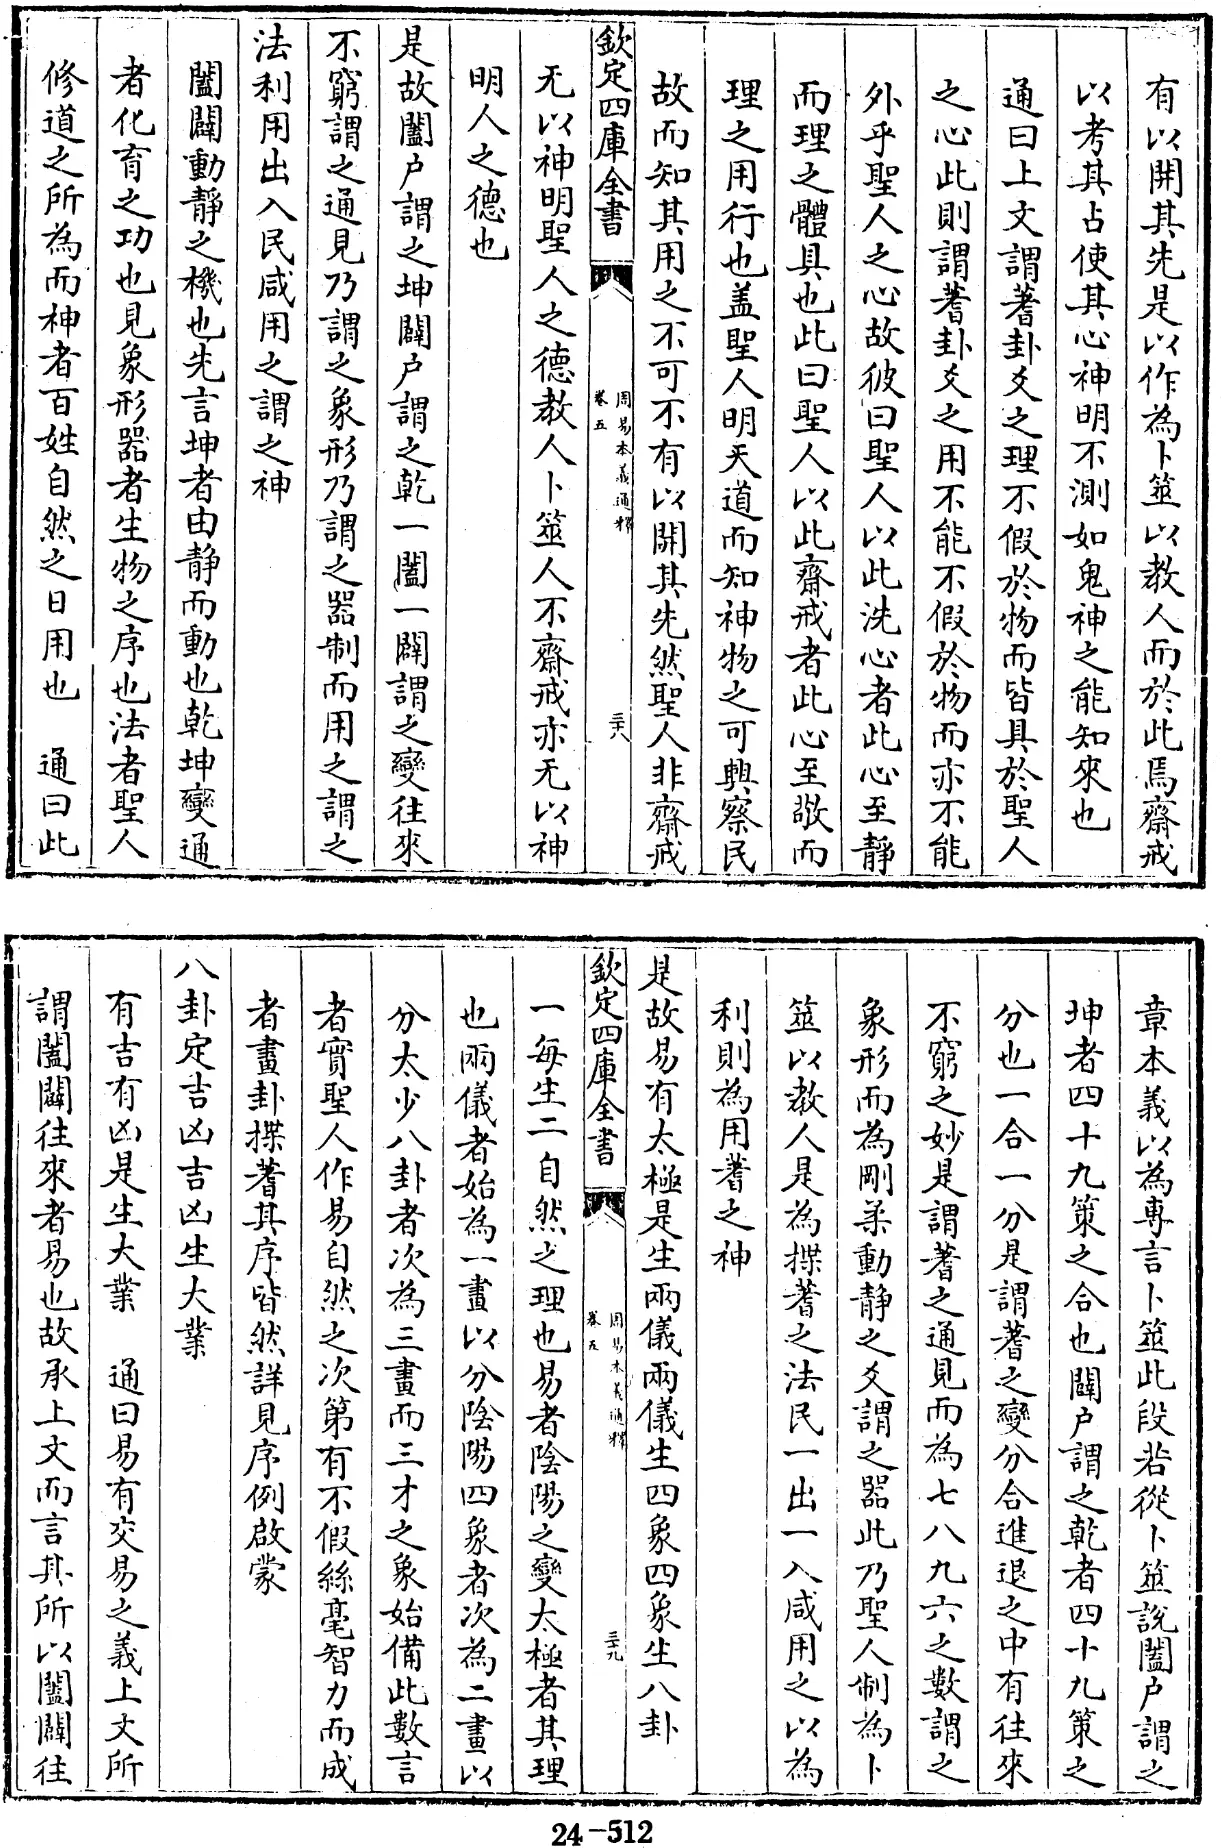 有以開其先是以作為卜筮以教人而於此焉齋戒
以考其占使其心神明不測如鬼神之能知來也
通曰上文謂蓍卦爻之理不假於物而皆具於聖人
之心此則謂蓍卦爻之用不能不假於物而亦不能
外乎聖人之心故彼曰聖人以此洗心者此心至靜
而理之體具也此曰聖人以此齋戒者此心至敬而
理之用行也盖聖人明天道而知神物之可興察民
故而知其用之不可不有以開其先然聖人非齋戒
欽定四庫全書
周易本義通釋
卷五
三十八
无以神明聖人之德教人卜筮人不齋戒亦无以神
明人之德也
是故闔户謂之坤闢户謂之乾一闔一闢謂之變往來
不窮謂之通見乃謂之象形乃謂之器制而用之謂之
法利用出入民咸用之謂之神
闔闢動靜之機也先言坤者由靜而動也乾坤變通
者化育之功也見象形器者生物之序也法者聖人
修道之所為而神者百姓自然之日用也　通曰此
章本義以為專言卜筮此段若從卜筮說闔户謂之
坤者四十九策之合也闢户謂之乾者四十九策之
分也一合一分是謂蓍之變分合進退之中有往來
不窮之妙是謂蓍之通見而為七八九六之數謂之
象形而為剛柔動靜之爻謂之器此乃聖人制為卜
筮以教人是為揲蓍之法民一出一入咸用之以為
利則為用蓍之神
是故易有太極是生兩儀兩儀生四象四象生八卦
欽定四庫全書
周易本義通釋
卷五
三十九
一每生二自然之理也易者陰陽之變太極者其理
也兩儀者始為一畫以分陰陽四象者次為二畫以
分太少八卦者次為三畫而三才之象始備此數言
者實聖人作易自然之次第有不假絲毫智力而成
者畫卦揲蓍其序皆然詳見序例啟蒙
八卦定吉凶吉凶生大業
有吉有凶是生大業　通曰易有交易之義上文所
謂闔闢往來者易也故承上文而言其所以闔闢往
24-512